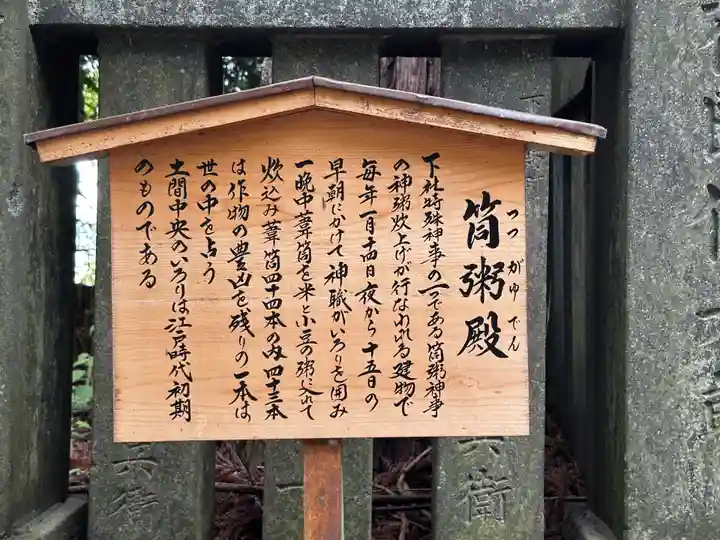 筒粥殿
つつがゆでん
下社特殊神事の一つである筒粥神事
の神粥炊上げが行なわれる建物で
毎年一月十四日夜から十五日の
早朝にかけて神職がいろりを囲み
一晩中葦筒を米と小豆の粥に入れて
炊込み葦筒四十四本の内四十三本
は作物の豊凶を残りの一本は
世の中を占う
土間中央のいろりは江戸時代初期
のものである
兵衛
兵衛